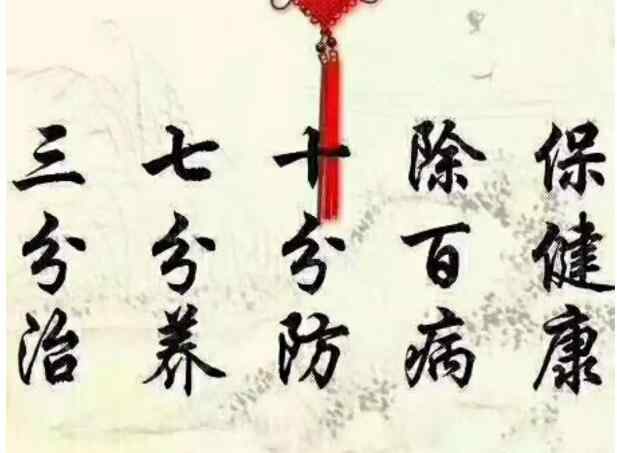 三分治
七分养
十分防
除百病
保健康